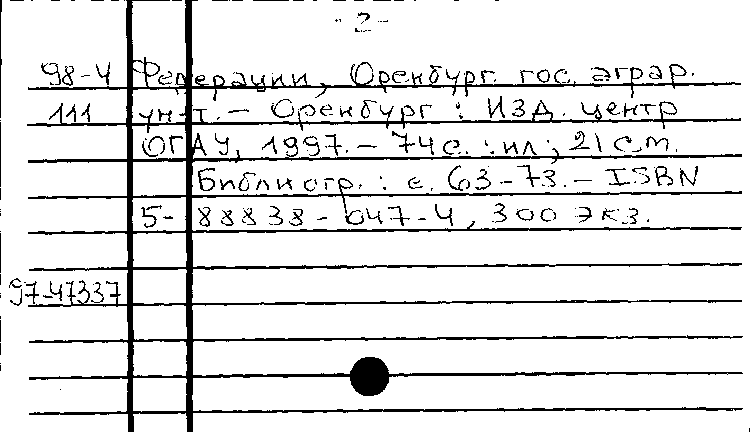 - 2 -
98-4 Федерации, Оренбург. гос. аграр.
111 ун-т. - Оренбург : ИЗД. центр
ОГАУ, 1997. - 74 с. : ил ; 21 см.
Библиогр. : с. 63-73. - ISBN
5-88838-047-4, 300 экз.
97-47337